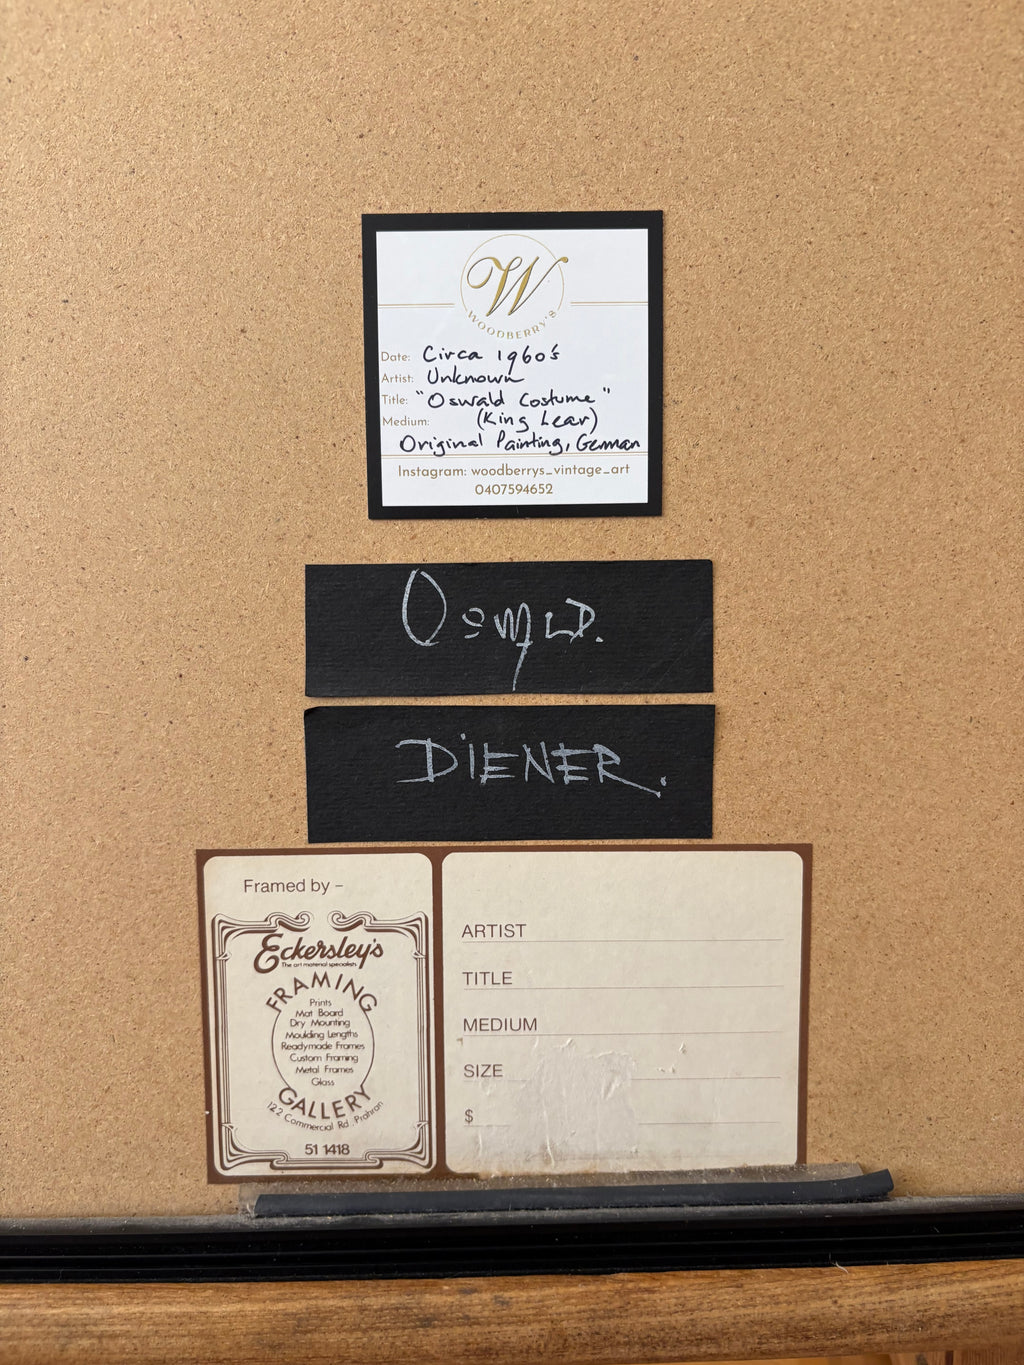 W
WOODBERRY'S
Date: Circa 1960's
Artist: Unknown
Title: "Oswald Costume"
Medium: (King Lear)
Original Painting, German
Instagram: woodberrys_vintage_art
0407594652
OSWALD.
DiENER.
Framed by –
Eckersley's
The art material specialists
FRAMING
Prints
Mat Board
Dry Mounting
Moulding Lengths
Readymade Frames
Custom Framing
Metal Frames
Glass
GALLERY
122 Commercial Rd. Prahran
51 1418
ARTIST
TITLE
MEDIUM
SIZE
$